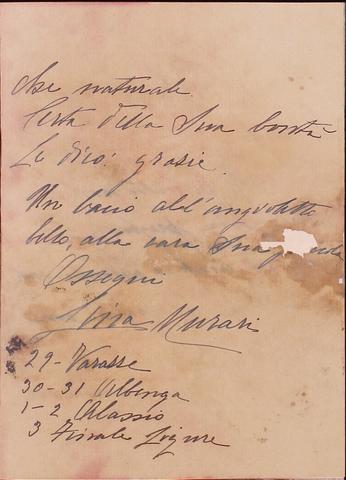 Certa della Sua bontà
Le dico: grazie.
Un bacio all'angioletto
bello, alla cara Sua
Ossequi
Lina Murari
29 - Varazze
30-31 Albenga
1-2 Alassio
3 Finale Ligure